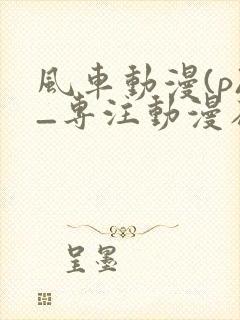 風車動漫(p
–專注動漫
呈墨